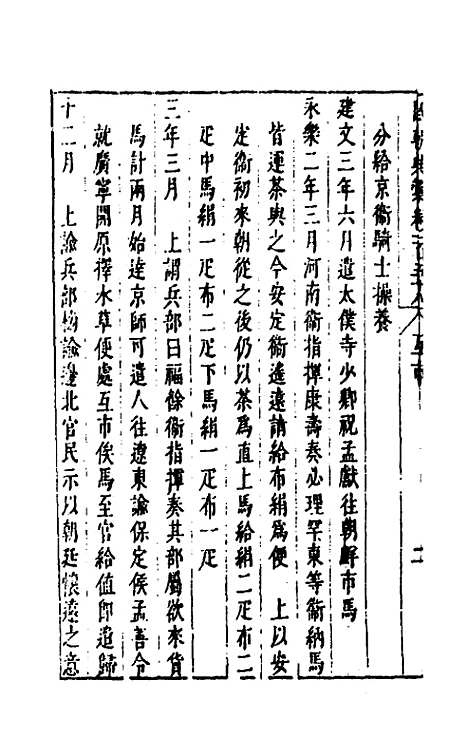 國朝典彙卷一百五十八 互市 二
分給京衛騎士操養
建文三年六月遣太僕寺少卿祝孟獻往朝鮮市馬
永樂二年三月河南衛指揮康壽奏必理罕東等衛納馬
皆運茶與之今安定衛遙遠請給布絹爲便 上以安
定衛初來朝從之後仍以茶爲直上馬給絹二疋布二
疋中馬絹一疋布二疋下馬絹一疋布一疋
三年三月 上謂兵部曰福餘衛指揮奏其部屬欲來貨
馬計兩月始達京師可遣人往遼東諭保定侯孟善令
就廣寧開原擇水草便處互市俟馬至官給值即遣歸
十二月 上諭兵部榜諭邊北官民示以朝廷懷遠之意